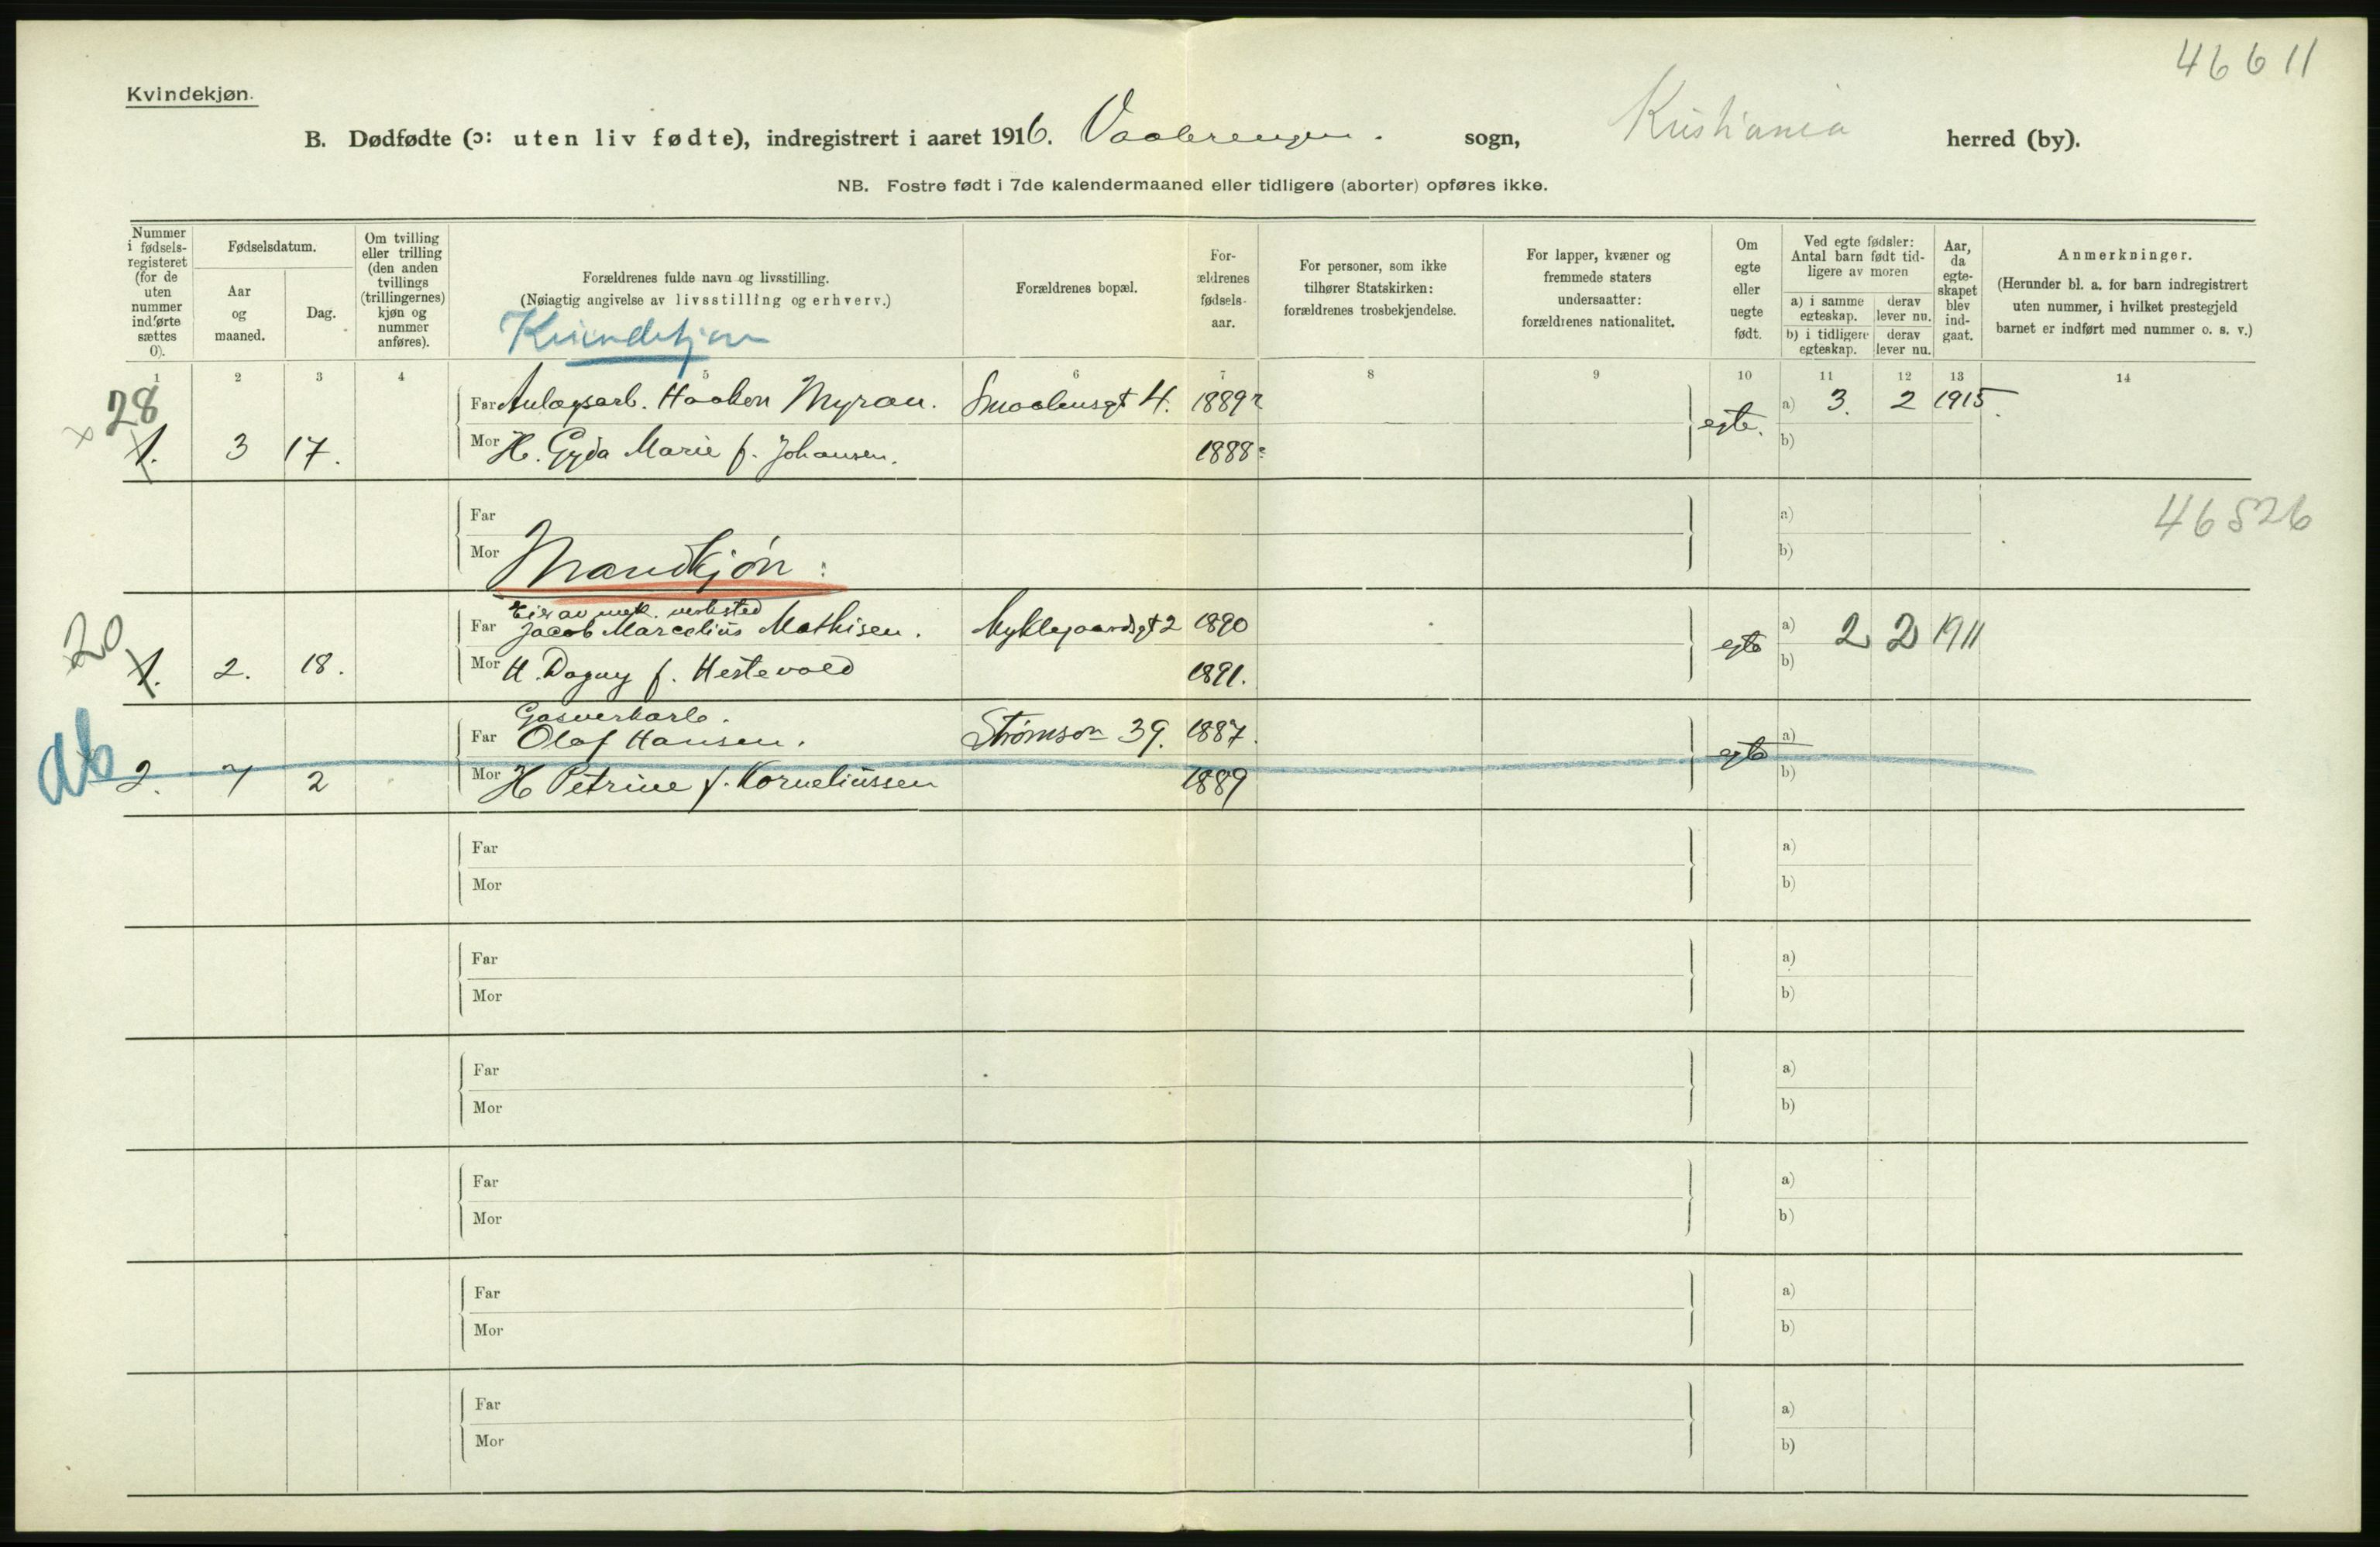 46611
Kvindekjøn.
B. Dødfødte (ɔ: uten liv fødte), indregistrert i aaret 1916. Vaalerengen. sogn, Kristiania herred (by).
NB. Fostre født i 7de kalendermaaned eller tidligere (aborter) opføres ikke.
Nummer i fødselsregisteret (for de uten nummer indførte sættes 0).
Fødselsdatum.
Aar og maaned.
Dag.
Om tvilling eller trilling (den anden tvillings (trillingernes) kjøn og nummer anføres).
Forældrenes fulde navn og livsstilling.
(Nøiagtig angivelse av livsstilling og erhverv.)
Kvindekjøn
Forældrenes bopæl.
Forældrenes fødselsaar.
For personer, som ikke tilhører Statskirken: forældrenes trosbekjendelse.
For lapper, kvæner og fremmede staters undersaatter: forældrenes nationalitet.
Om egte eller uegte født.
Ved egte fødsler: Antal barn født tidligere av moren
a) i samme egteskap. derav lever nu.
b) i tidligere egteskap. derav lever nu.
Aar, da egteskapet blev indgaat.
Anmerkninger.
(Herunder bl. a. for barn indregistrert uten nummer, i hvilket prestegjeld barnet er indført med nummer o. s. v.)
1 2 3 4 5 6 7 8 9 10 11 12 13 14
28
Far Anlægsarb. Haakon Myran. Smaalensgt 4. 1889 egte. a) 3. 2 1915.
x 1. 3 17. Mor H. Gyda Marie f. Johansen. 1888 b)
Far a) 46526
Mor Mandkjøn: b)
20 Eier av mek. verksted
Far Jacob Marcelius Mathisen. Nyklegaardsgt 2 1890 egte a) 2 2 1911
1. 2. 18. Mor H. Dagny f. Hestevold 1891. b)
Gasverkarb.
Far Olaf Hansen. Strømsvn 39. 1887. egte a)
Ab 2. 7 2 Mor H Petrine f. Korneliussen 1889 b)
Far a)
Mor b)
Far a)
Mor b)
Far a)
Mor b)
Far a)
Mor b)
Far a)
Mor b)
Far a)
Mor b)